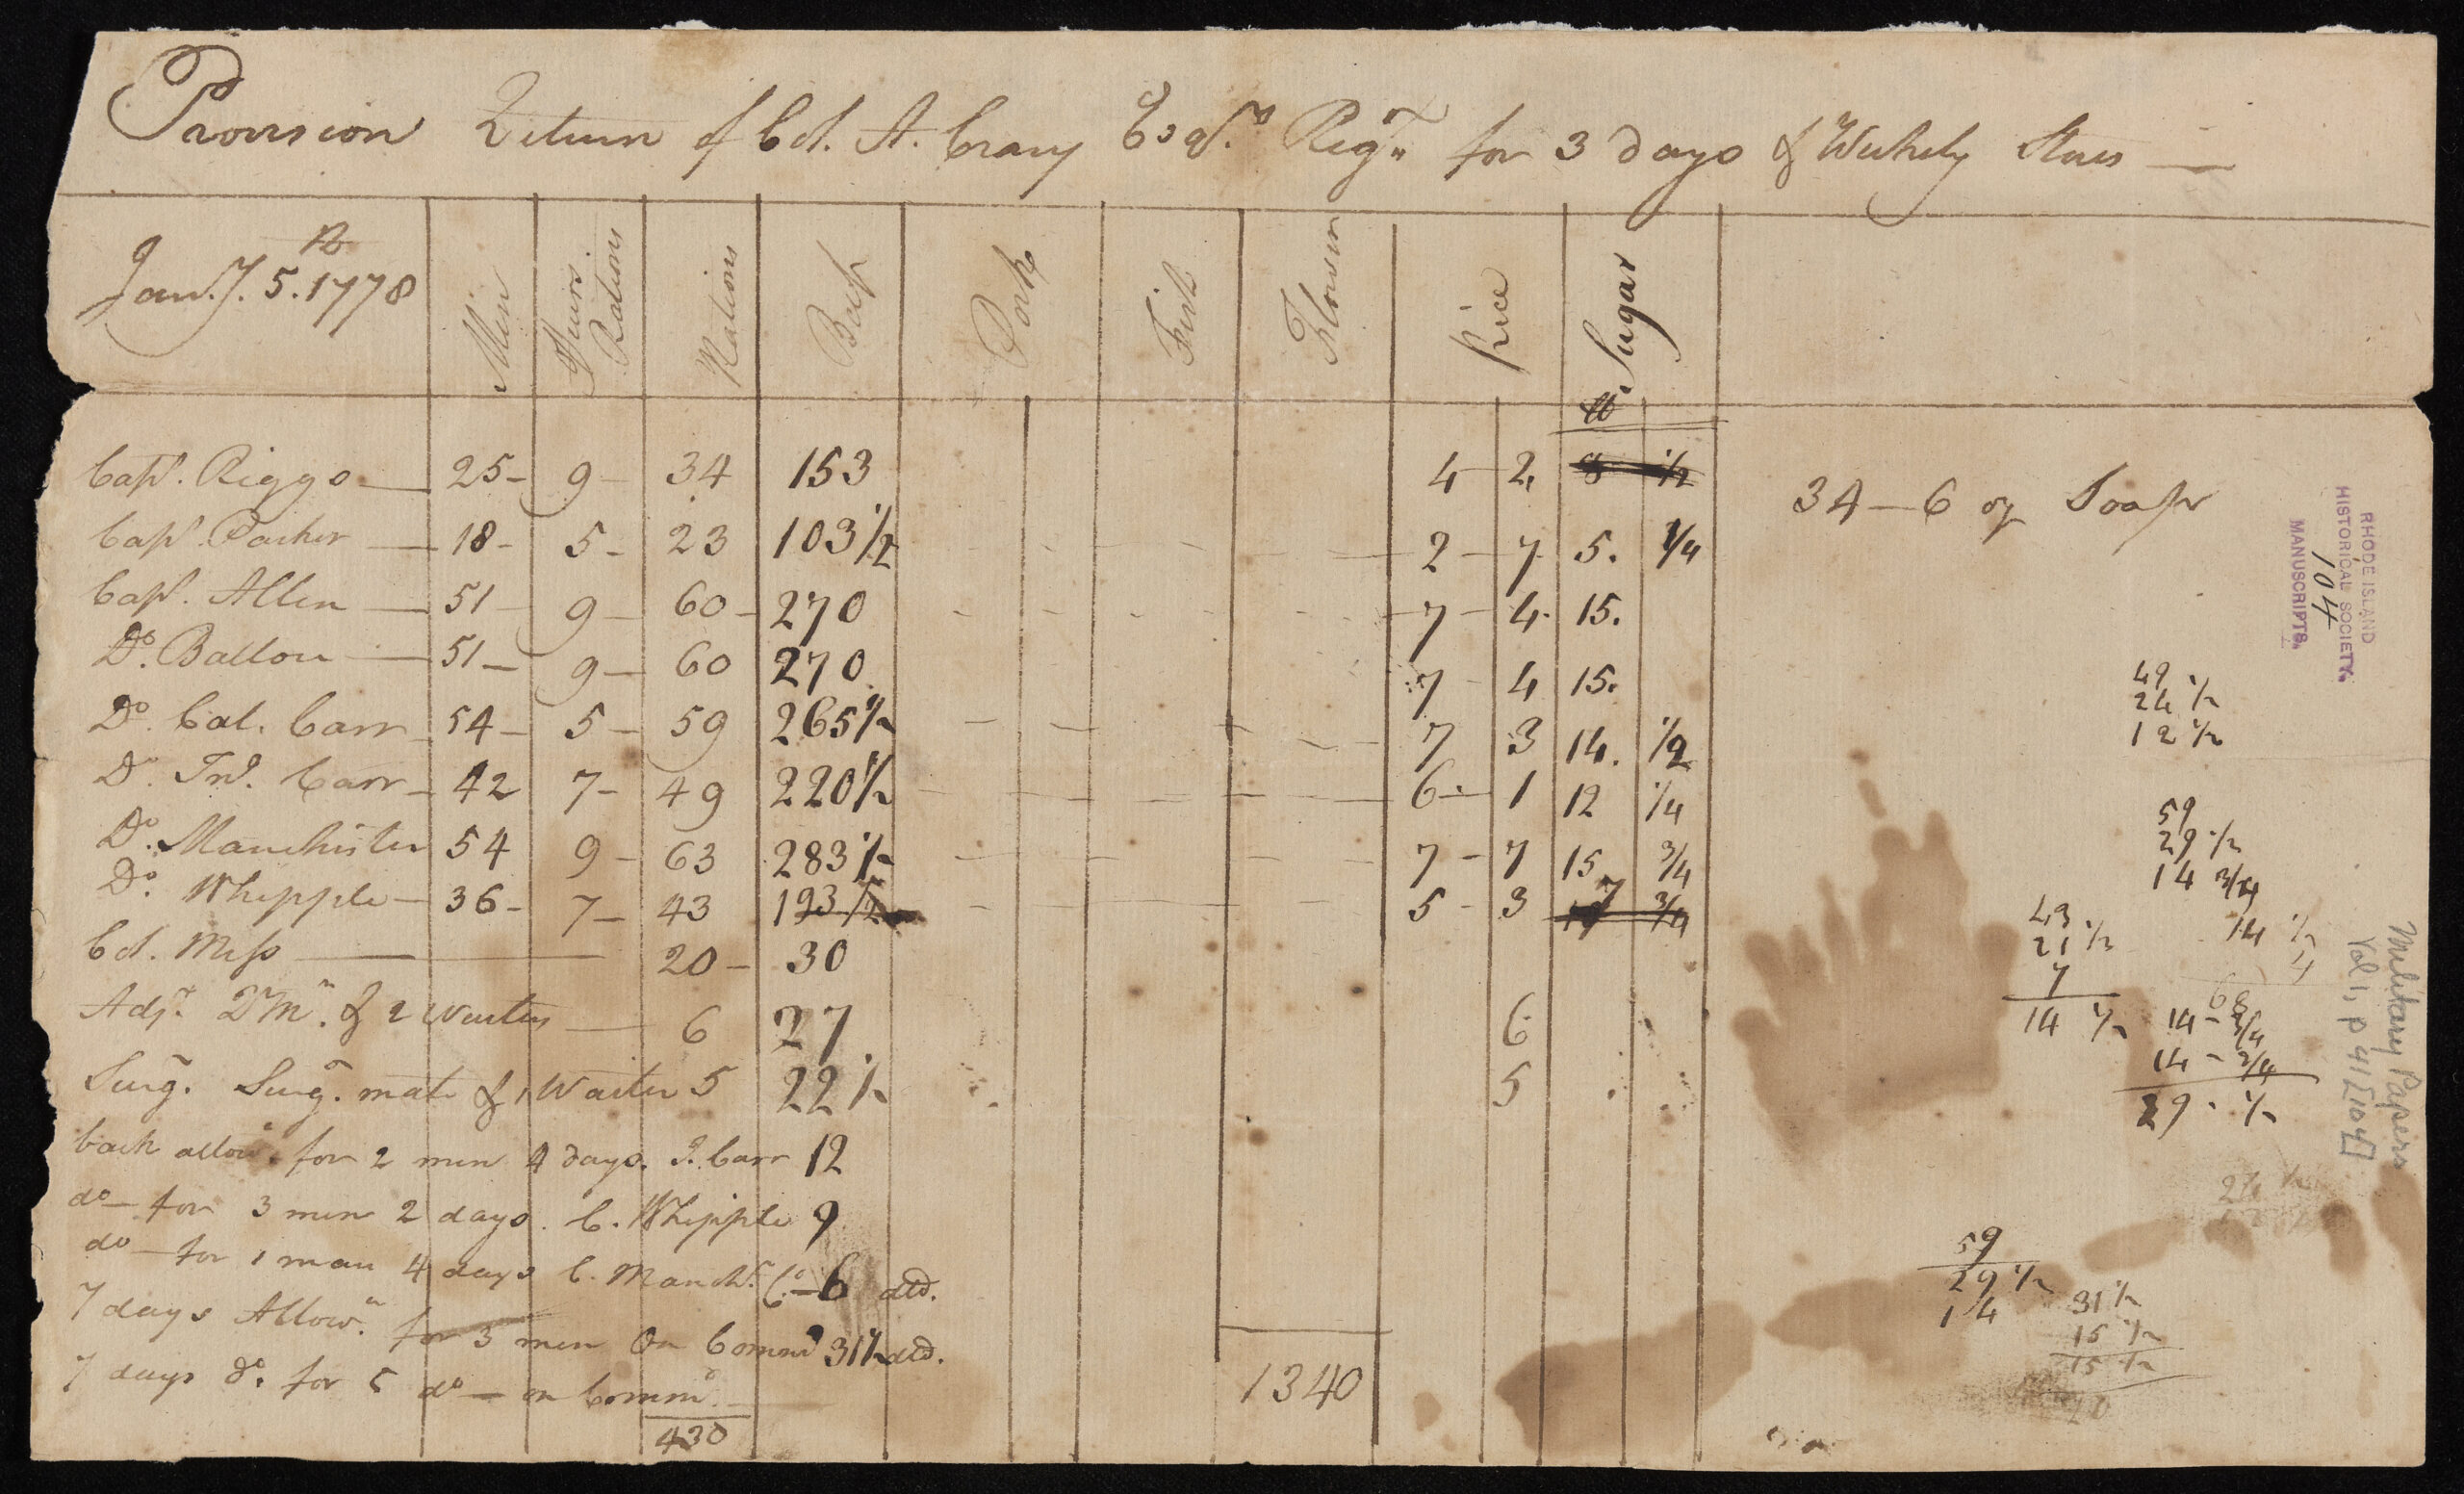 Provision Return of Col. A. Crary Esqrs. Regt. for 3 Days & Weekly Stores —
Jany. 5. 1778
Men
Rations
Rations
Beef
Pork
Fish
Flower
Rice
Sugar
lb
Capt. Riggs — 25 — 9 — 34 153 4 2 8 1/2
34 — 6 of Soap
Capt. Parker — 18 — 5 — 23 103 1/2 2 — 7 5. 1/4
Capt. Allen — 51 9 — 60 — 270 7 — 4 15.
Do. Ballou — 51 — 9 — 60 270 7 — 4 15.
Do. Cal. Carr 54 — 5 — 59 265 1/2 7 3 14. 1/2
Do. Jno. Carr — 42 7 — 49 220 1/2 6 — 1 12 1/4
Do. Manchester 54 9 — 63 283 1/2 7 — 7 15 3/4
Do. Whipple — 36 — 7 — 43 193 1/2 5 — 3 3/4
Col. Mess — 20 — 30
Adjt. QrMr. & 2 Waiters — 6 27 6
Surgn. Surgn. mate & 1 Waiter 5 22 1/2 5
back allowe. for 2 men 4 days. J. Carr 12
do — for 3 men 2 days. C. Whipple 9
do — for 1 man 4 days C. Manchr. Co. — 6 dld.
7 days Allown. for 3 men On Commd 31 1/2 dld.
7 days do. for 5 do — on Commd.
430
1340
RHODE ISLAND
HISTORICAL SOCIETY.
104
MANUSCRIPTS.
49
24 1/2
12 1/2
59
29 1/2
14 3/4
14 1/2
43
21 1/2
7
14 1/2
14 - 3/4
14 - 3/4
29 - 1/2
Military Papers
Vol 1, p 41 [104]
59
29 1/2
14
31 1/2
15 1/2
15 1/2